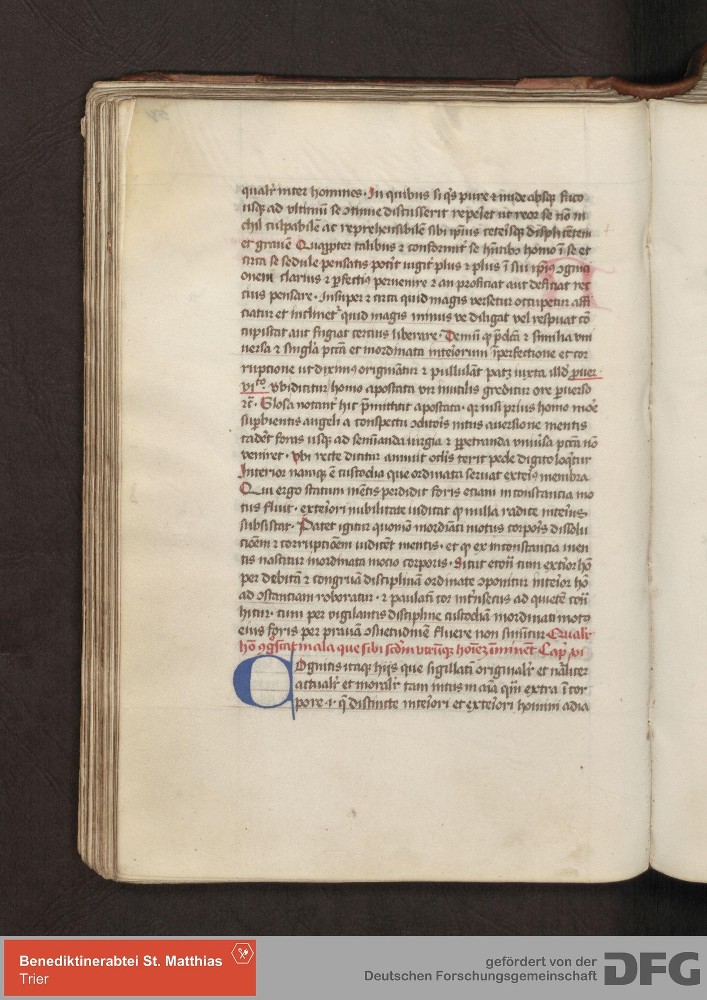 qualr inter homines. In quibus si qs pure & nude absq; fuco
usq; ad ultimū se discusserit repeiet ut reor se nō ni
chil culpabilē ac reprehensibilē sibi ipsius displicētem
et gravē Quapptr talibus & conformit se hntibus homo ī se et
circa se sedule pensatis potit iugit plus & plus ī sui ipius ogniti
onem clarius & pfectius pervenire & an proficiat aut deficiat rec
tius pensare. Insuper & circa quid magis versetur occupetur affi
ciatur et inclinetr quid magis minus ve diligat vel respuat cō
cupiscat aut fugiat cercius liberare. Demū q & similia uni
versa & singla pcta et inordinata interiorum īperfectione et cor
ruptione ut diximus originātur & pullulāt patz iuxta illd puer
vito. Ubi dicitur homo apostata vir inutilis graditur ore pverso
rc. Glosa notant hic pmittitur apostata. qr nisi prius homo more
supbientis angeli a conspectu oditoris intus aversione mentis
cadet foras usq; ad semināda iurgia & ppetranda univsa pcta nō
veniret. Ubi recte dicitur annuit oclis terit pede digito loqtur
Interior namque ē custodia que ordinata servat exteris membra
Qui ergo statum mētis perdidit foris etiam in constancia mo
tus fluit. exteriori mibilitate iudicat q nulla radice interius
subsistat. Patet igitur quoniā inordiāti motus corporis dissolu
cioēm & corrupcioēm iudicēt mentis. et q ex inconstancia men
tis nascitur inordinata mocio corporis. Sicut cum extior hō
per debitā & congruā disciplinā ordinate oponitur interior hō
ad ostantiam roboratur. & paulatī cor intrīsecus ad quietē
hitur. cum per vigilantis discipline custodiā inordinati motus
eius foris per pravā osuetudinē fluere non sinūtur Qualir
hō mala que sibi scdm utrūq; hoiez iminēt Cap vi
Cognitis itaq; hiis que sigillatī originalr et naliter
actualr et moralr tam intus in aīa qm extra ī cor
pore .i. q distincte interiori et exteriori homini adia
Benediktinerabtei St. Matthias
Trier
gefördert von der
Deutschen Forschungsgemeinschaft
DFG